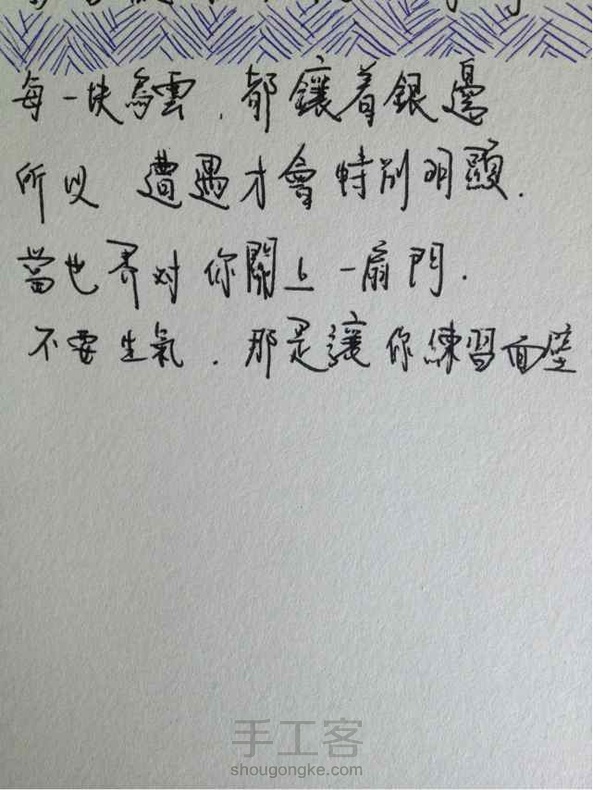 每一块烏雲．都鑲着銀邊
所以 遭遇才會特别明顯．
當世界对你關上一扇門．
不要生氣．那是讓你練習面壁
手工客
shougongke.com